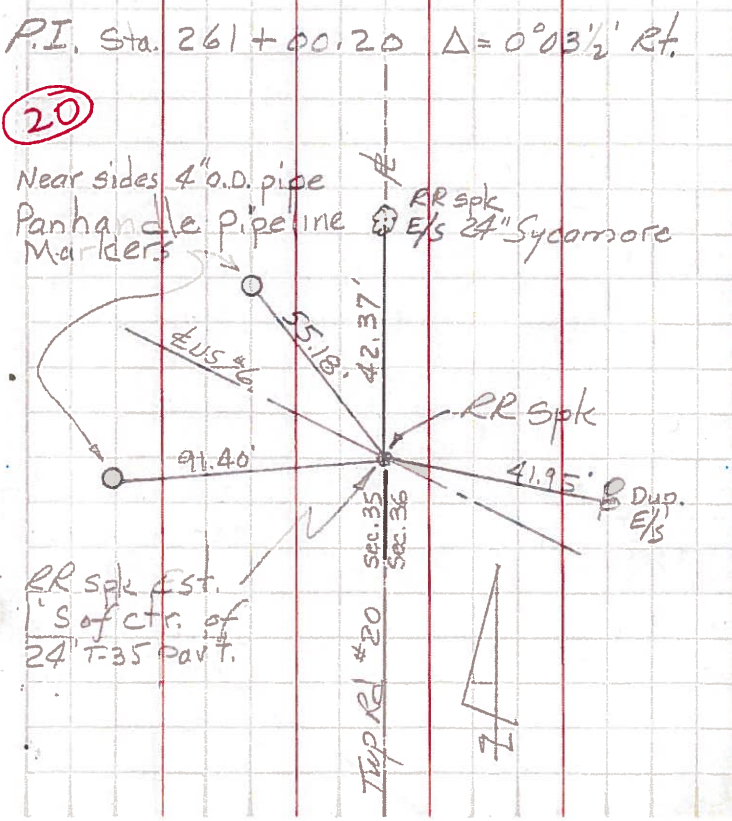 P.I. Sta. 261+00.20 Δ=0°03½' Rt.
20
Near sides 4" O.D. pipe
Panhandle Pipeline
Markers
RR spk
E/s 24" Sycamore
55.18'
42.37'
℄ US #6
RR Spk
91.40'
41.95'
Dup.
E/s
Sec. 35
Sec. 36
RR spk Est.
1' S of ctr. of
24' T-35 Pav't.
Twp Rd #20